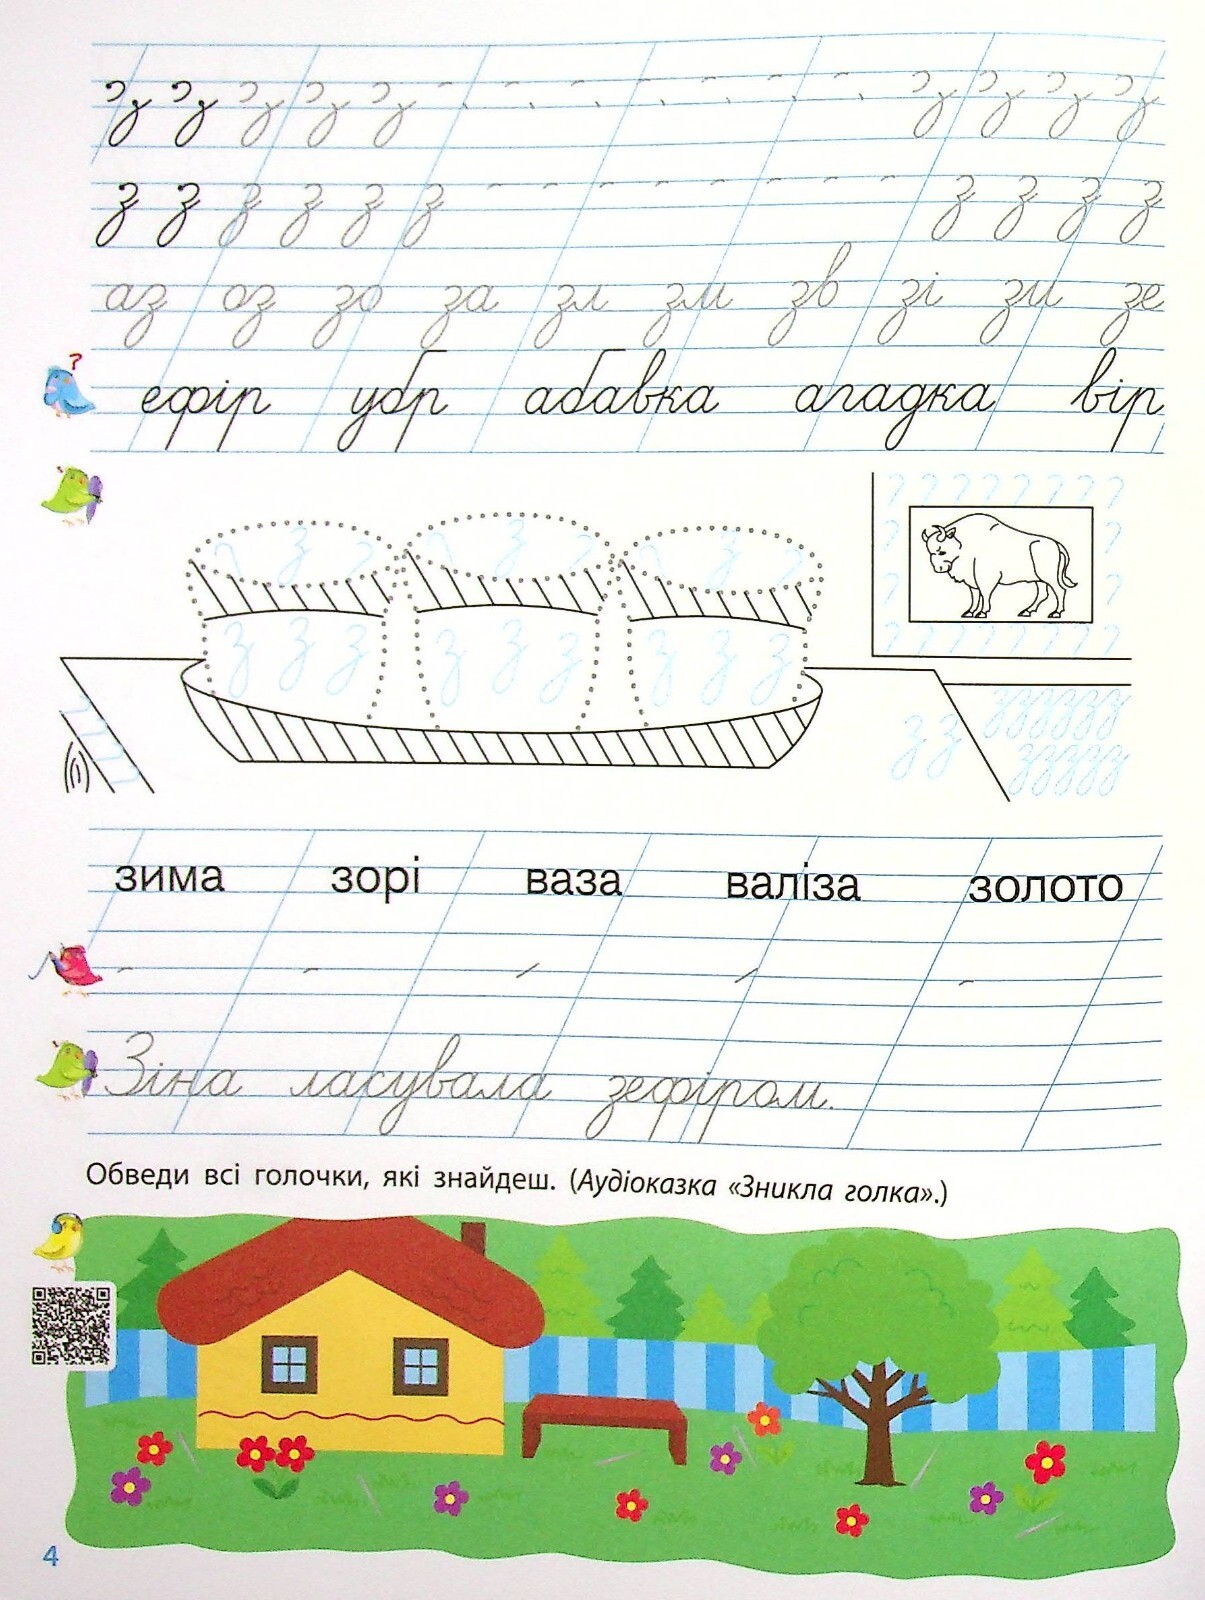 з з з з з з з з з
з з з з з з з з з з
аз оз зо за зл зм зв зі зи зе
?
ефір убр абавка агадка вір
з з з
з з з з з з з з з
з з з з з з з
з з з з з
зима зорі ваза валіза золото
Зіна ласувала зефіром.
Обведи всі голочки, які знайдеш. (Аудіоказка «Зникла голка».)
4